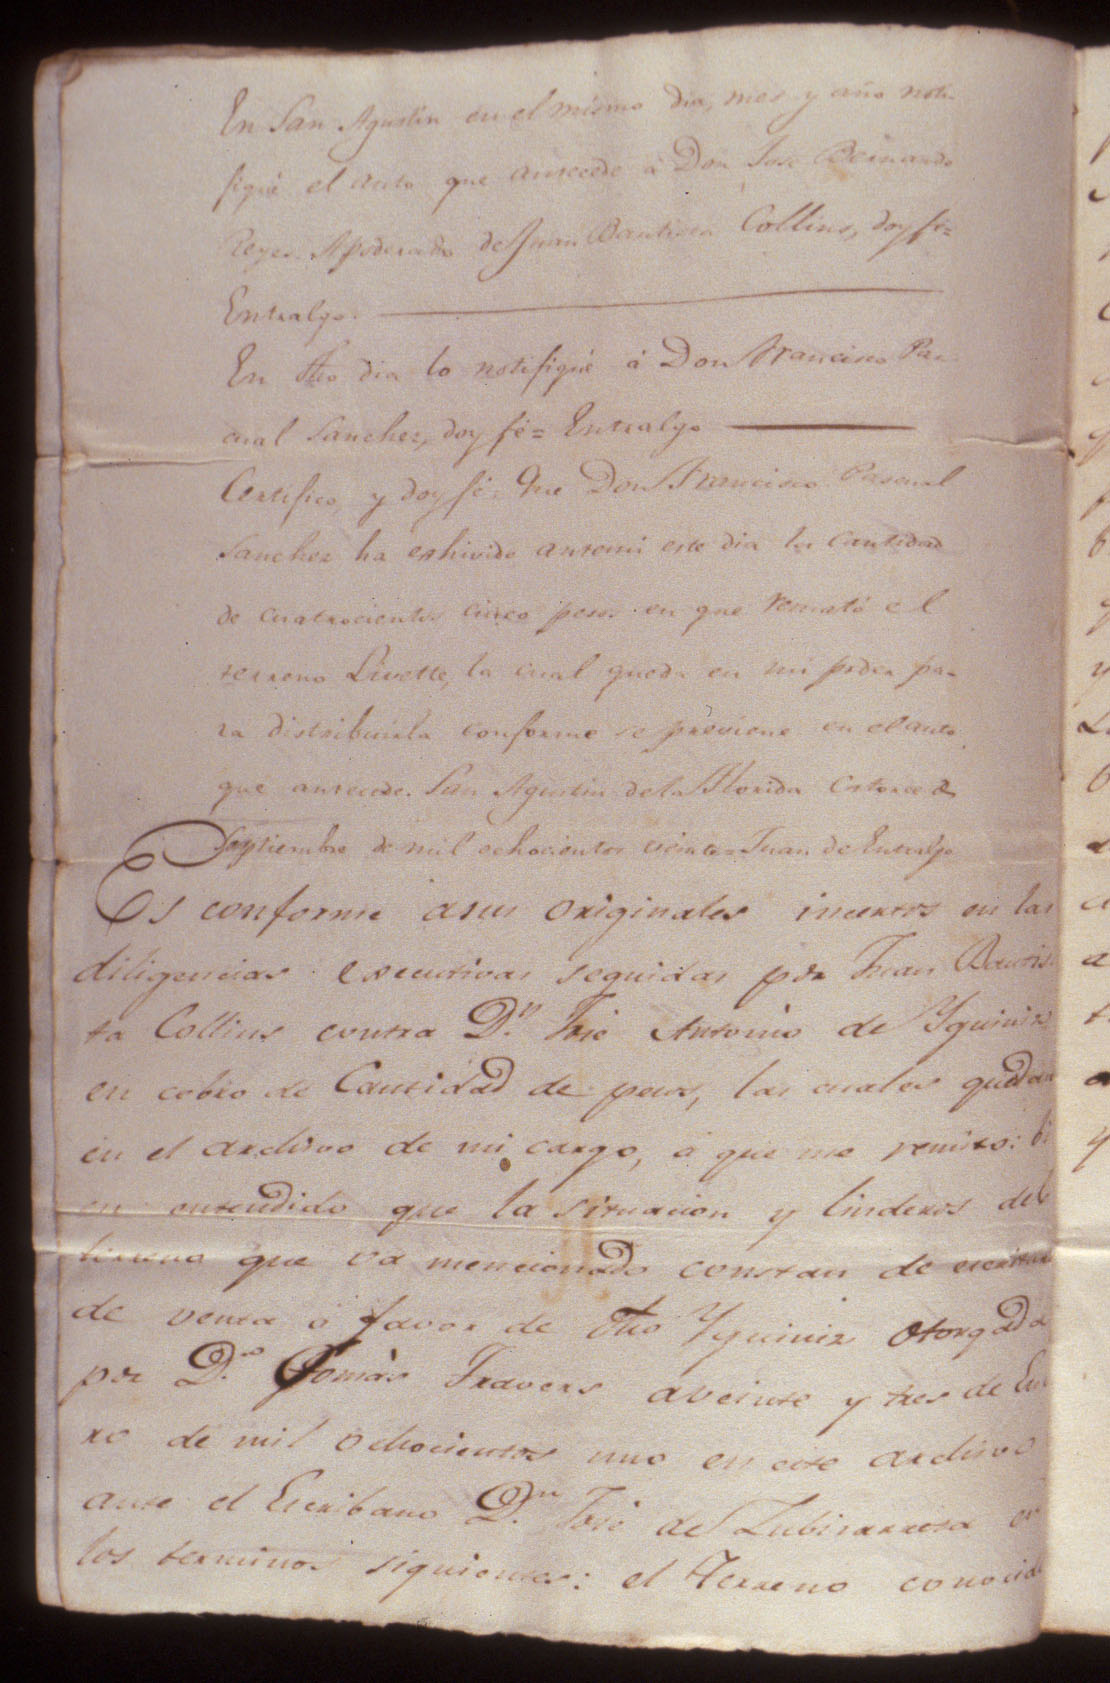 En San Agustin en el mismo dia, mes y año noti-
fiqué el auto que antecede á Don José Bernardo
Reyes Apoderado de Juan Bautista Collins, doy fé=
Entralgo.
En dho dia lo notifiqué á Don Francisco Pas-
cual Sanchez, doy fé= Entralgo
Certifico, y doy fé: Que Don Francisco Pascual
Sanchez ha exhivido antemi este dia la cantidad
de cuatrocientos cinco pesos en que remató el
terreno Livette, la cual queda en mi poder pa-
ra distribuirla conforme se previene en el auto
que antecede. San Agustin de la Florida catorce de
Septiembre de mil ochocientos veinte= Juan de Entralgo
Es conforme asus originales incertos en las
diligencias executivas seguidas por Juan Bautis-
ta Collins contra Dn. José Antonio de Yguiniz
en cobro de Cantidad de pesos, las cuales quedan
en el archivo de mi cargo, á que me remito: bi
en entendido que la situacion y linderos del
terreno que va mencionado constan de escritura
de venta á favor de dho Yguiniz otorgada
por Dn. Tomàs Travers aveinte y tres de Ene
ro de mil ochocientos uno en este archivo
ante el Escribano Dn. José de Zubizarreta en
los terminos siguientes: el terreno conocido